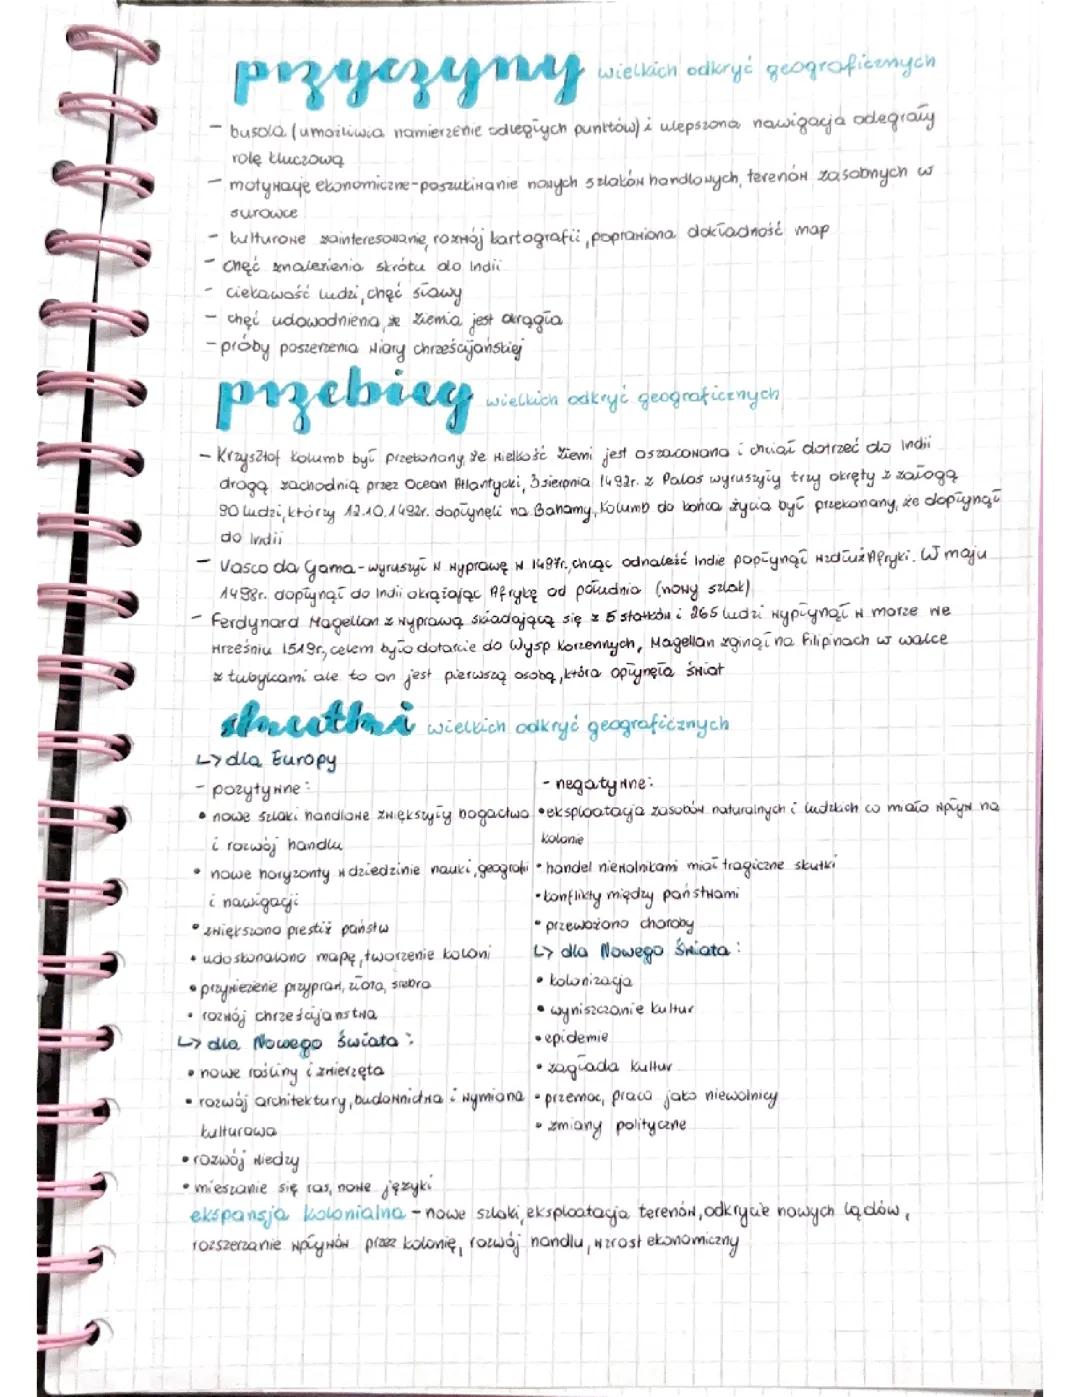 przyczyny wielkich odkryć geograficznych
- busola (umożliwia namierzenie odległych punktów) i ulepszona nawigacja odegrały
rolę kluczową
- motywacje ekonomiczne - poszukiwanie nowych szlaków handlowych, terenów zasobnych w
surowce
- kulturowe zainteresowanie, rozwój kartografii, poprawiona dokładność map
- chęć znalezienia skrótu do Indii
- ciekawość ludzi, chęć sławy
- chęć udowodniena, że Ziemia jest okrągła
- próby poszerzenia wiary chrześcijańskiej
przebieg wielkich odkryć geograficznych
- Krzysztof Kolumb był przekonany, że wielkość Ziemi jest oszacowana i chciał dotrzeć do Indii
drogą zachodnią przez Ocean Atlantycki, 3 sierpnia 1492r. z Palos wyruszyły trzy okręty z załogą
90 ludzi, którzy 12.10.1492r. dopłynęli na Bahamy, Kolumb do końca życia był przekonany, że dopłynął
do Indii
- Vasco da Gama - wyruszył w wyprawę w 1497r., chcąc odnaleźć Indie popłynął wzdłuż Afryki. W maju
1498r. dopłynął do Indii okrążając Afrykę od południa (nowy szlak)
- Ferdynard Magellan z wyprawą składającą się z 5 statków i 265 ludzi wypłynął w morze we
wrześniu 1519r, celem było dotarcie do Wysp Korzennych, Magellan zginął na Filipinach w walce
z tubylcami ale to on jest pierwszą osobą, która opłynęła świat
skutki wielkich odkryć geograficznych
↳ dla Europy
- pozytywne:
• nowe szlaki handlowe zwiększyły bogactwo
i rozwój handlu
• nowe horyzonty w dziedzinie nauki, geografii
i nawigacji
• zwiększono prestiż państw
• udoskonalono mapę, tworzenie koloni
• przywiezienie przypraw, złota, srebra
• rozwój chrześcijaństwa
↳ dla Nowego Świata:
• nowe rośliny i zwierzęta
• rozwój architektury, budownictwa i wymiana
kulturowa
• rozwój wiedzy
• mieszanie się ras, nowe języki
- negatywne:
• eksploatacja zasobów naturalnych i ludzkich co miało wpływ na
kolonie
• handel niewolnikami miał tragiczne skutki
• konflikty między państwami
• przewożono choroby
↳ dla Nowego Świata:
• kolonizacja
• wyniszczanie kultur
• epidemie
• zagłada kultur
• przemoc, praca jako niewolnicy
• zmiany polityczne
ekspansja kolonialna - nowe szlaki, eksploatacja terenów, odkrycie nowych lądów,
rozszerzanie wpływów przez kolonię, rozwój handlu, wzrost ekonomiczny